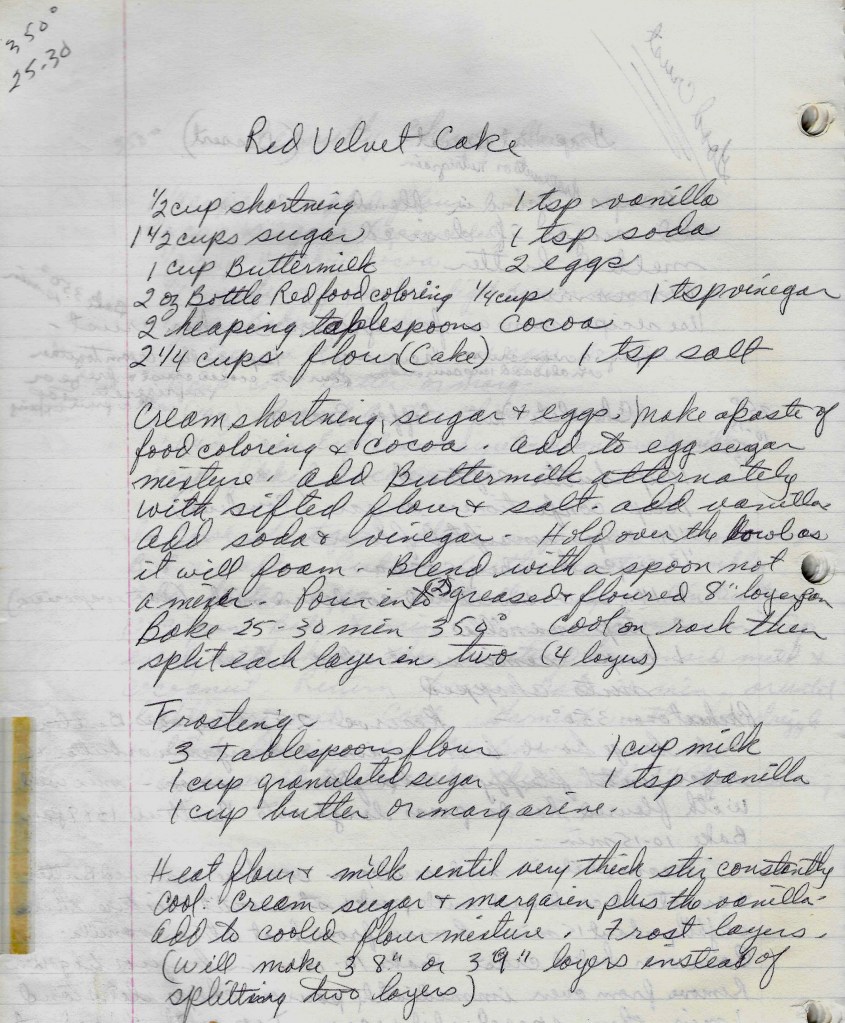 350°
25-30
Red Velvet Cake
1/2 cup shortning 1 tsp vanilla
1 1/2 cups sugar 1 tsp soda
1 cup Buttermilk 2 eggs
2 oz Bottle Red food coloring 1/4 cup 1 tsp vinegar
2 heaping tablespoons Cocoa
2 1/4 cups flour (Cake) 1 tsp salt
Cream shortning, sugar + eggs. Make a paste of
food coloring & cocoa. add to egg sugar
mixture. add Buttermilk alternately
with sifted flour + salt. add vanilla
add soda & vinegar. Hold over the bowl as
it will foam. Blend with a spoon not
a mixer. Pour into 2 greased + floured 8" layer pan
Bake 25-30 min 350° Cool on rack then
split each layer in two (4 layers)
Frosting
3 Tablespoons flour 1 cup milk
1 cup granulated sugar 1 tsp vanilla
1 cup butter or margarine.
Heat flour + milk until very thick stir constantly
Cool. Cream sugar + margarien plus the vanilla.
add to cooled flour mixture. Frost layers.
(Will make 3 8" or 3 9" layers instead of
splitting two layers)